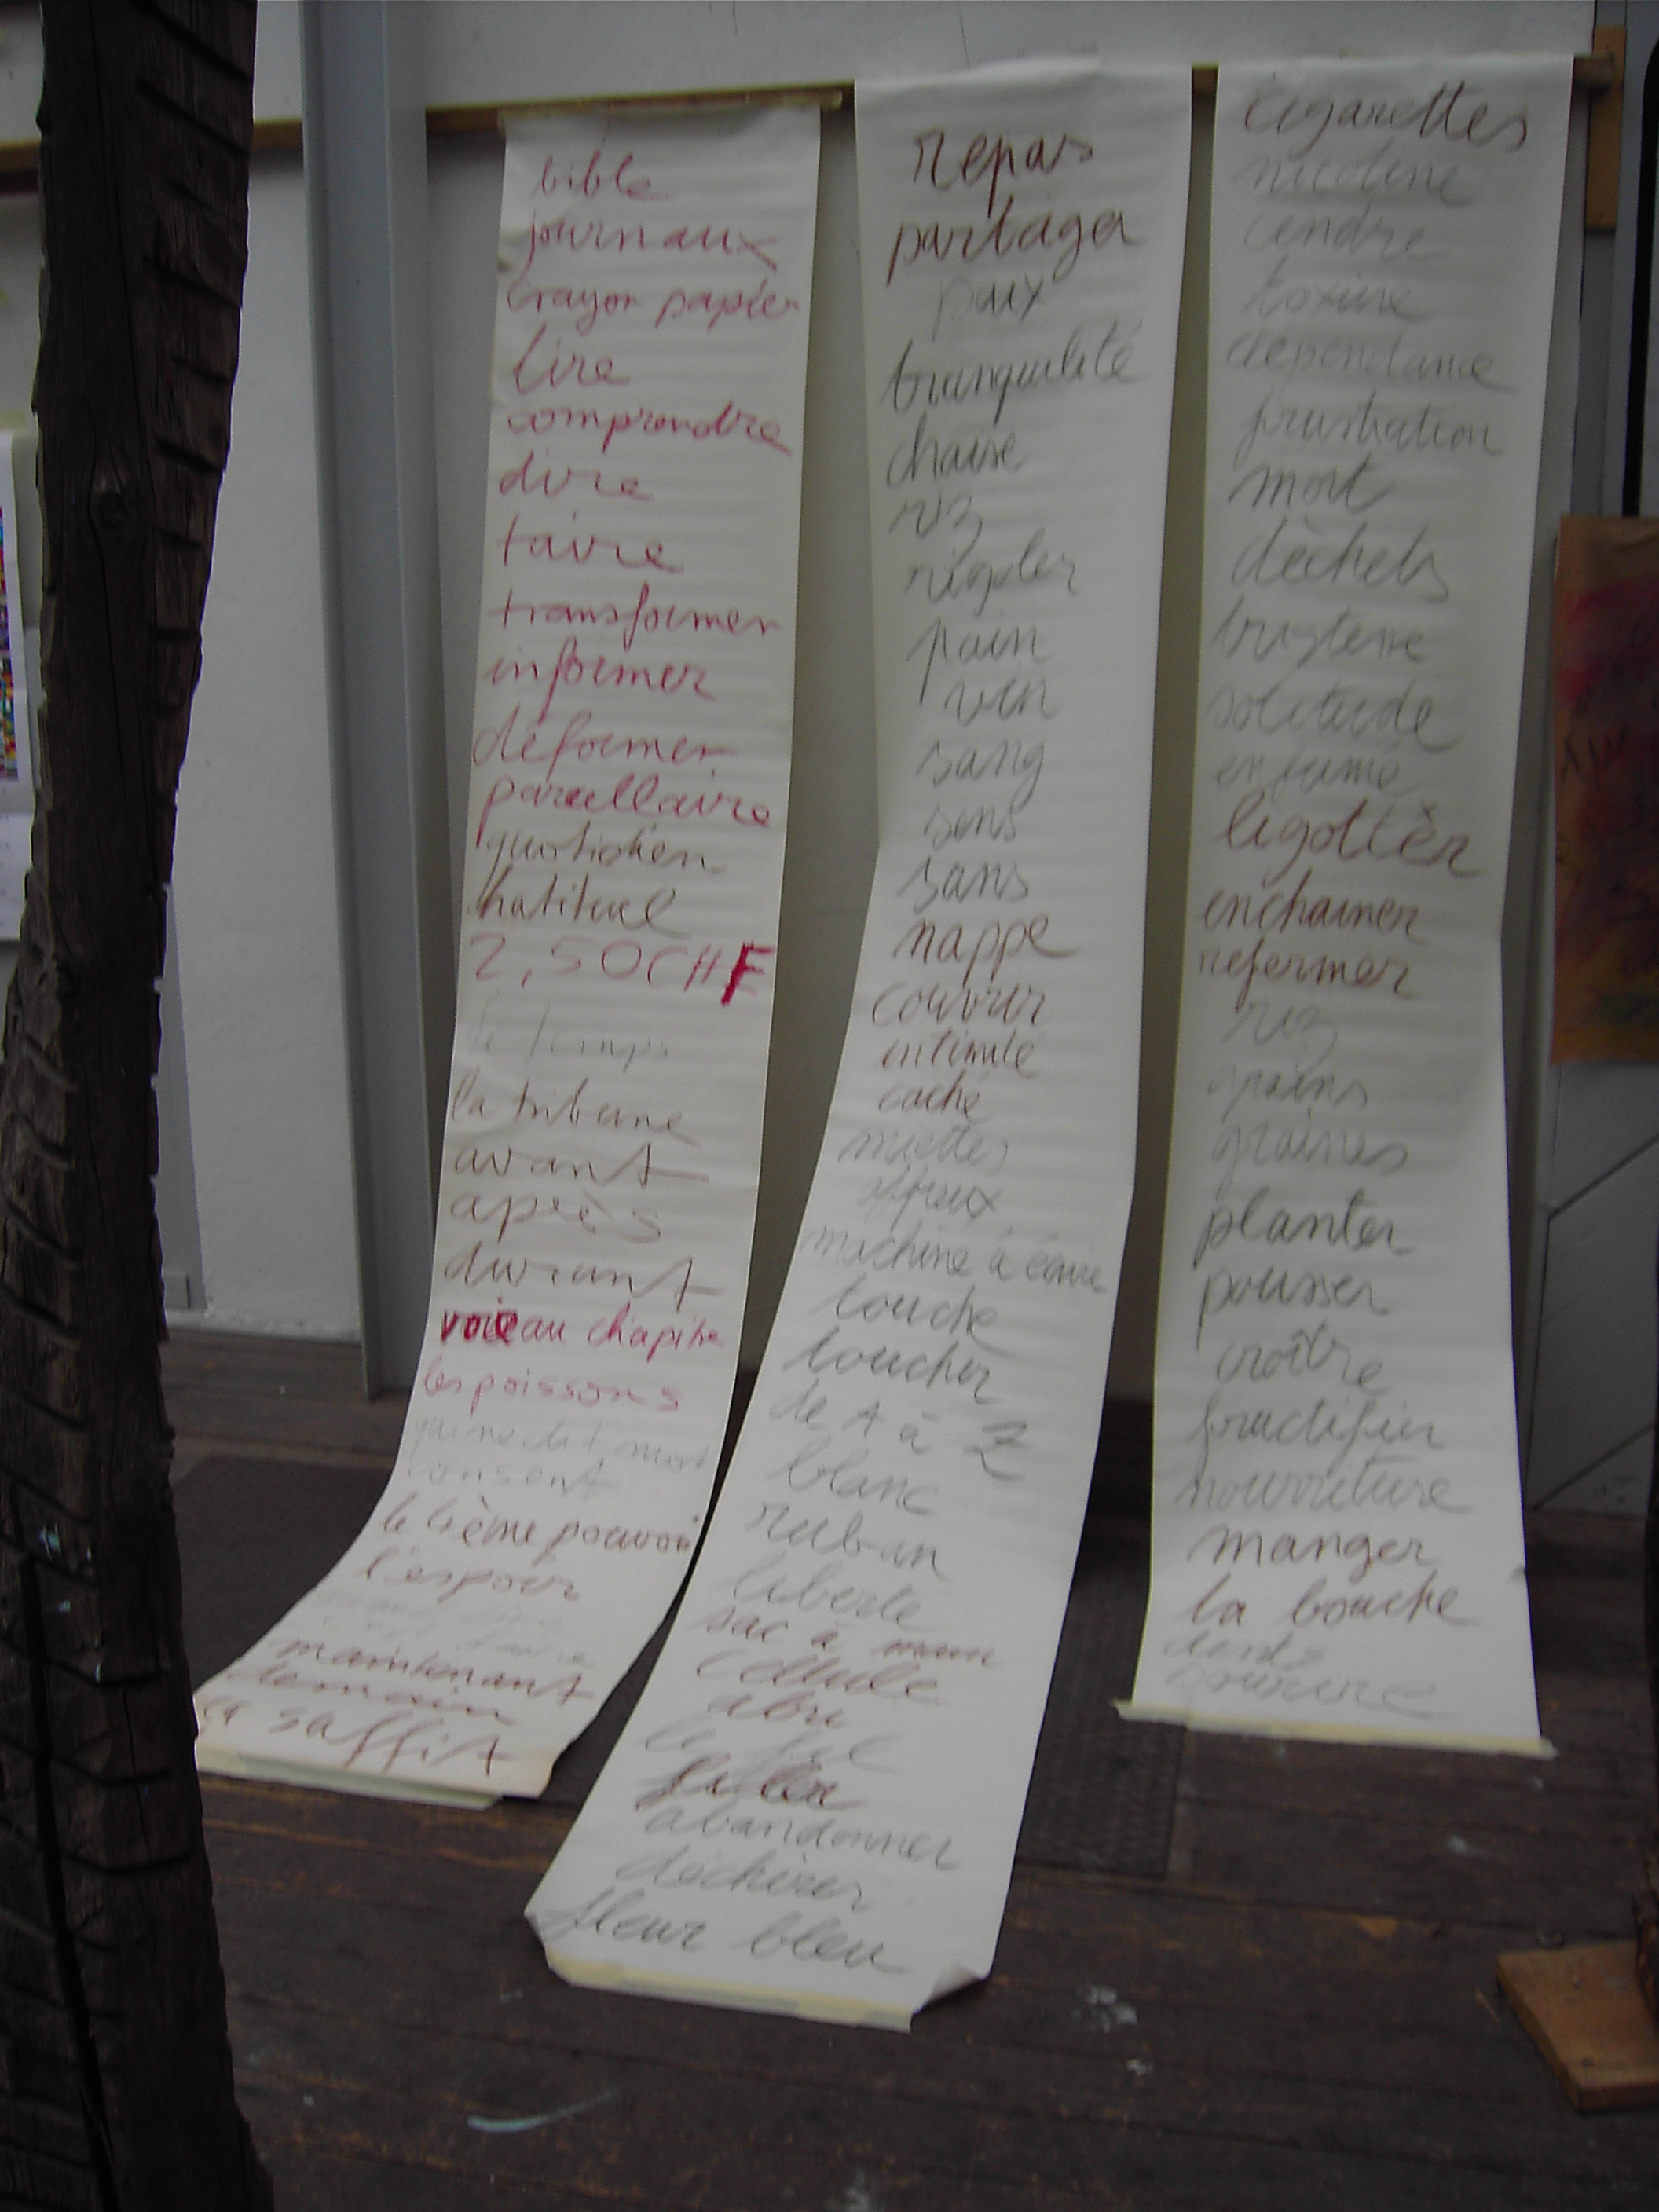 bible
journaux
crayon papier
lire
comprendre
dire
taire
transformer
informer
déformer
parcellaire
quotidien
habituel
2,50 CHF
le temps
la tribune
avant
après
durant
voie au chapitre
les poissons
qui ne dit mot
consent
le 4ème pouvoir
l'espoir
maintenant
demain
ça saffit
repas
partager
paix
tranquilité
chaise
riz
rigoler
pain
vin
sang
sens
sans
nappe
couvrir
intimité
caché
miettes
affreux
machine à écrire
touche
toucher
de A à Z
blanc
ruban
liberté
sac à main
cellule
abri
le fil
filer
abandonner
déchirer
fleur bleu
cigarettes
nicotine
cendre
toxine
dépendance
frustration
mort
dèchets
tristesse
solitude
enfumé
ligottèr
enchainer
refermer
riz
grains
graines
planter
pousser
croître
fructifier
nourriture
manger
la bouche
dents
sourire